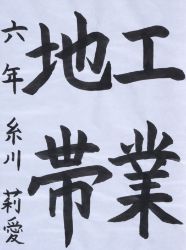 工業
地帯
六年 糸川 莉愛